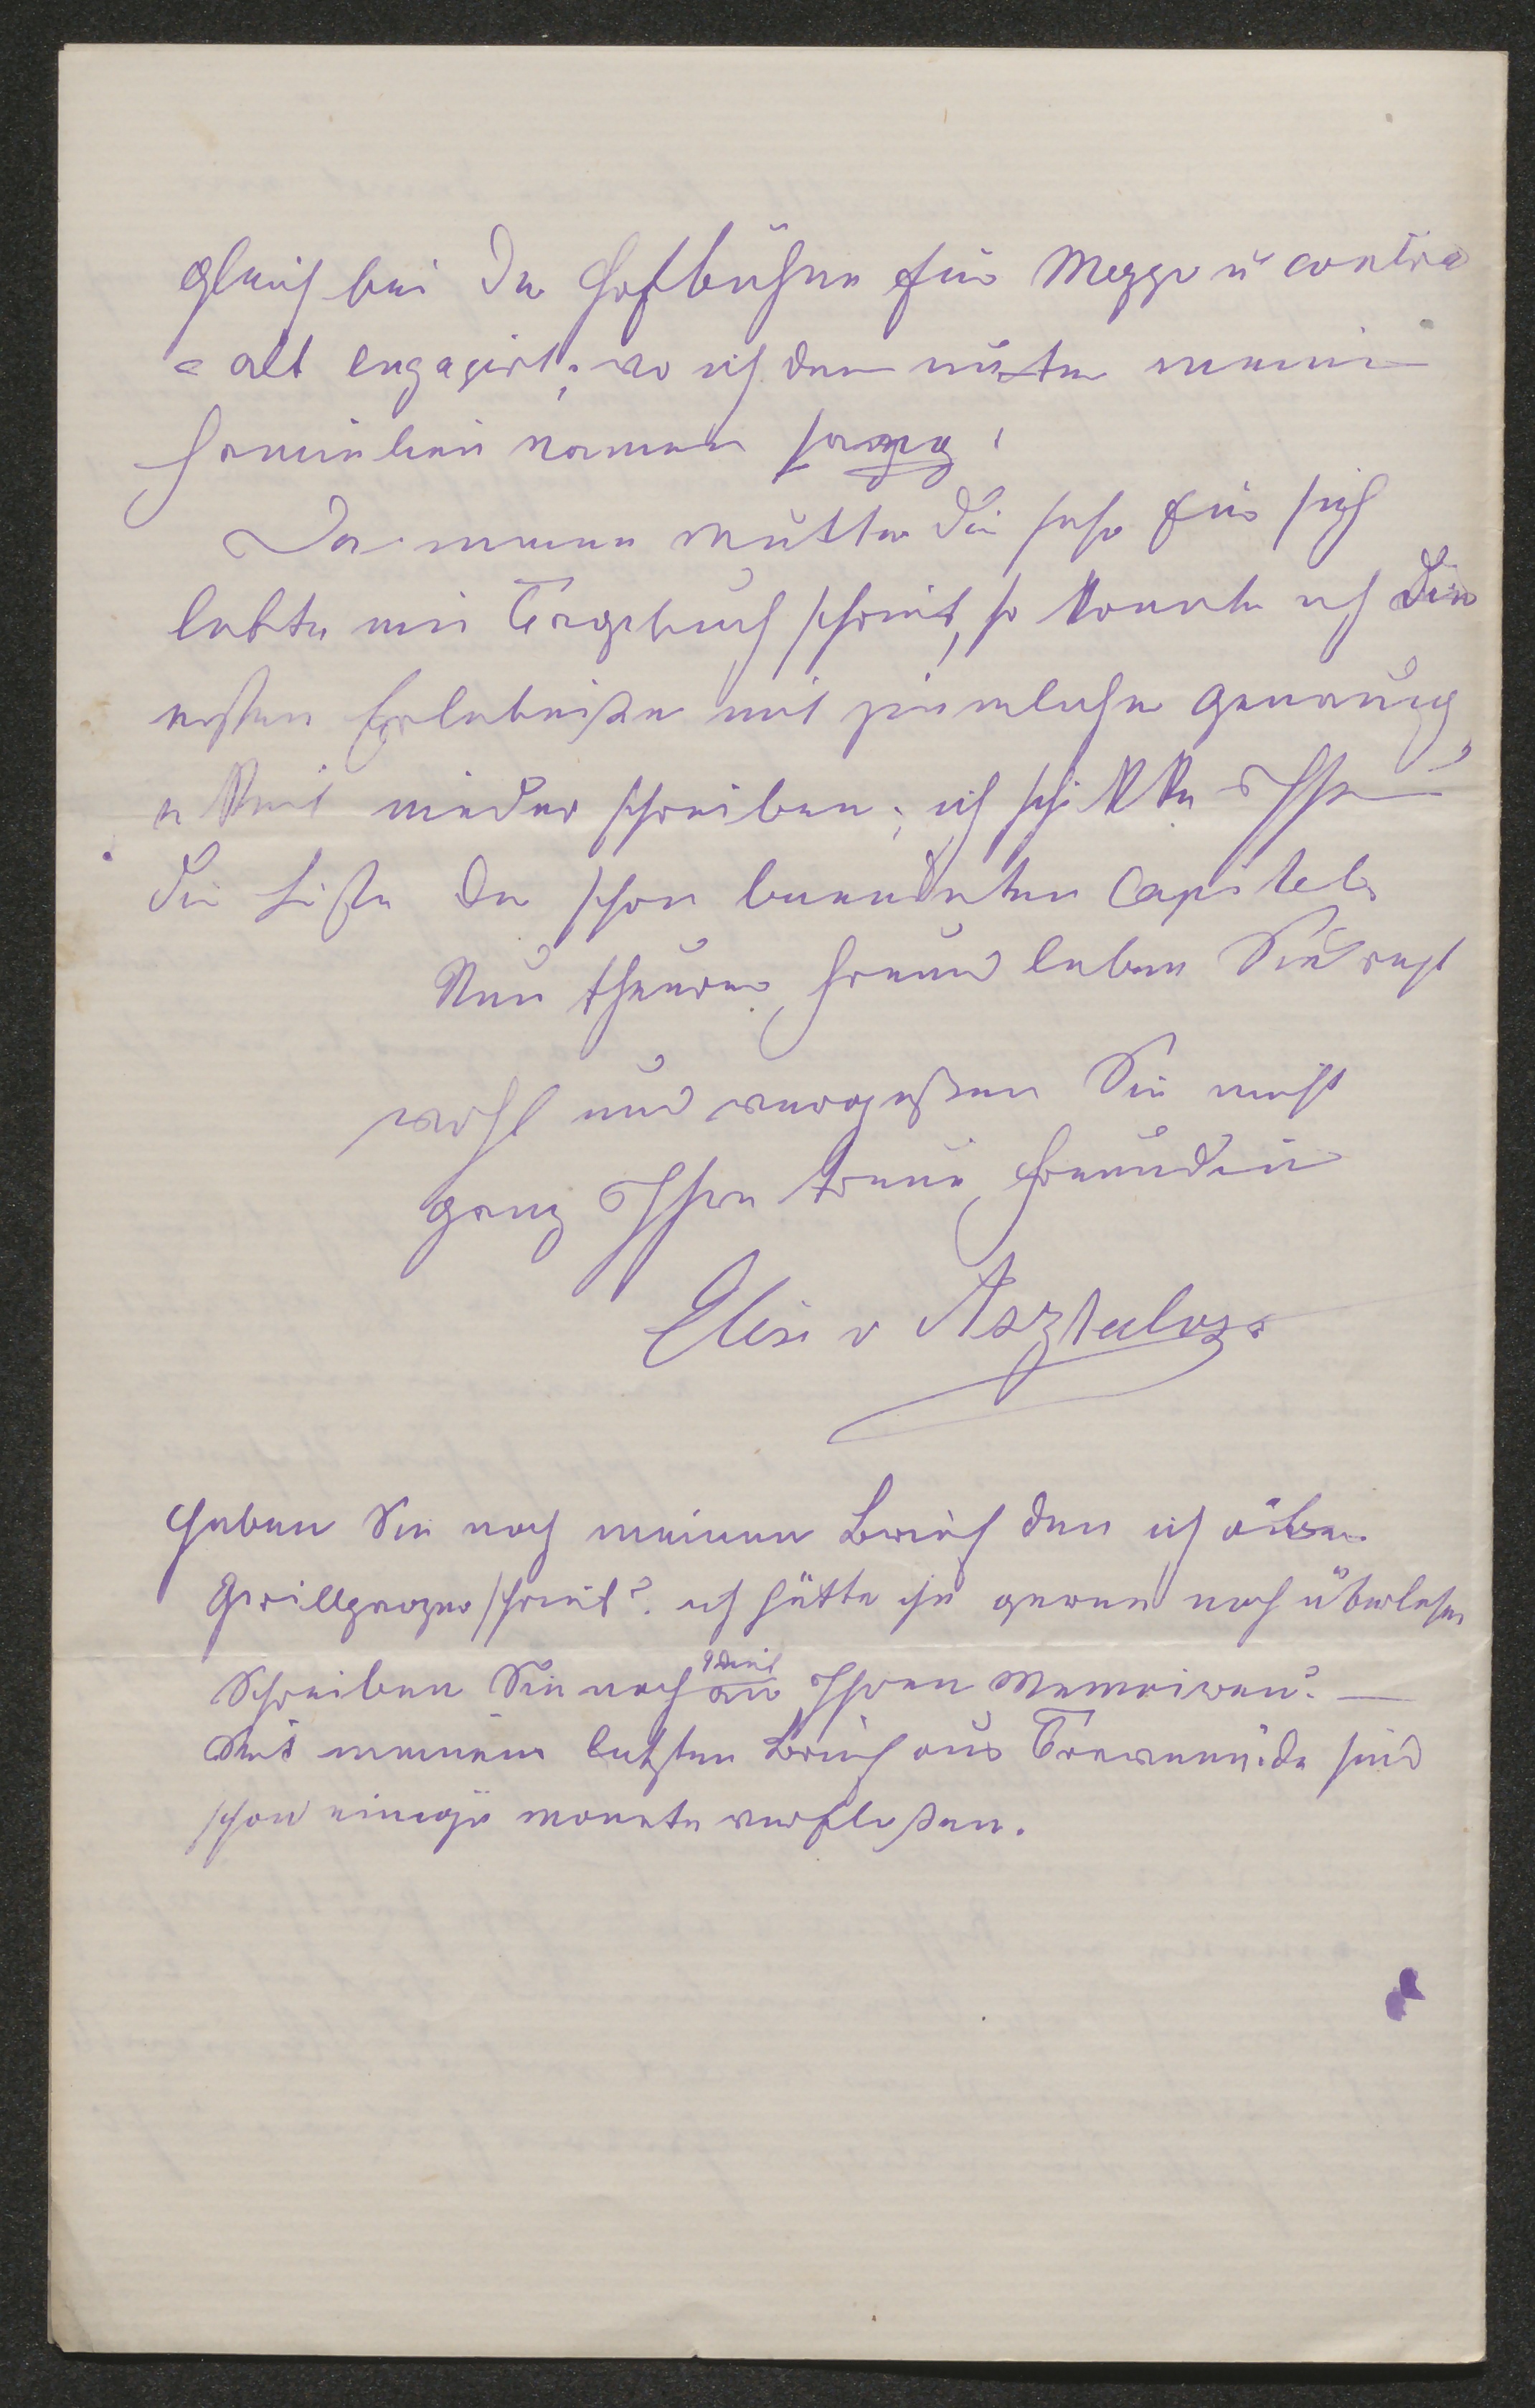 gleich bei der Hofbühne für Mezzo u contra
= alt engagirt; wo ich dan unter meinē
Familien namen sang,
Da meine Mutter die sehr für sich
lebte ein Tagebuch schrieb, so konnte ich die
ersten Erlebniße mit ziemlicher genauig
= keit nieder schreiben; ich schikke Ihn̄
die Liste der schon beendeten Capitels
Nun theurer Freund leben Sie recht
wohl und vergeßen Sie nicht
ganz Ihre treue Freundin
Elise v Asztalos
Haben Sie noch meinen Brief den ich über
Grillparzer schrieb? ich hätte ihn gerne noch überlesen
Schreiben Sie noch an Ihren Memoiren? —
Seit meinem letzten Brief aus Travemünde sind
schon einige monate verfloßen.